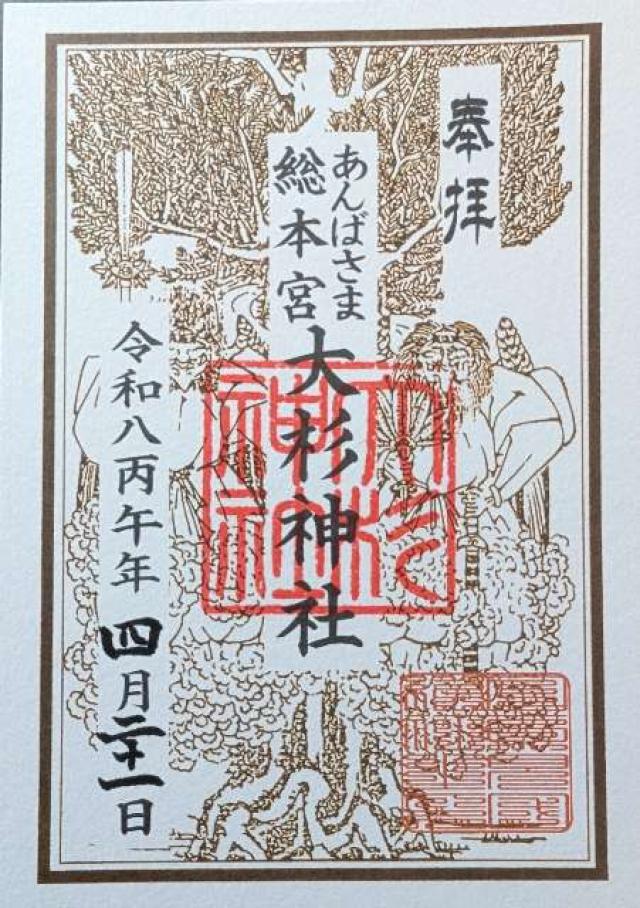 奉拝
あんばさま
総本宮
大杉神社
令和八丙午年
四月二十一日
大杉
神社